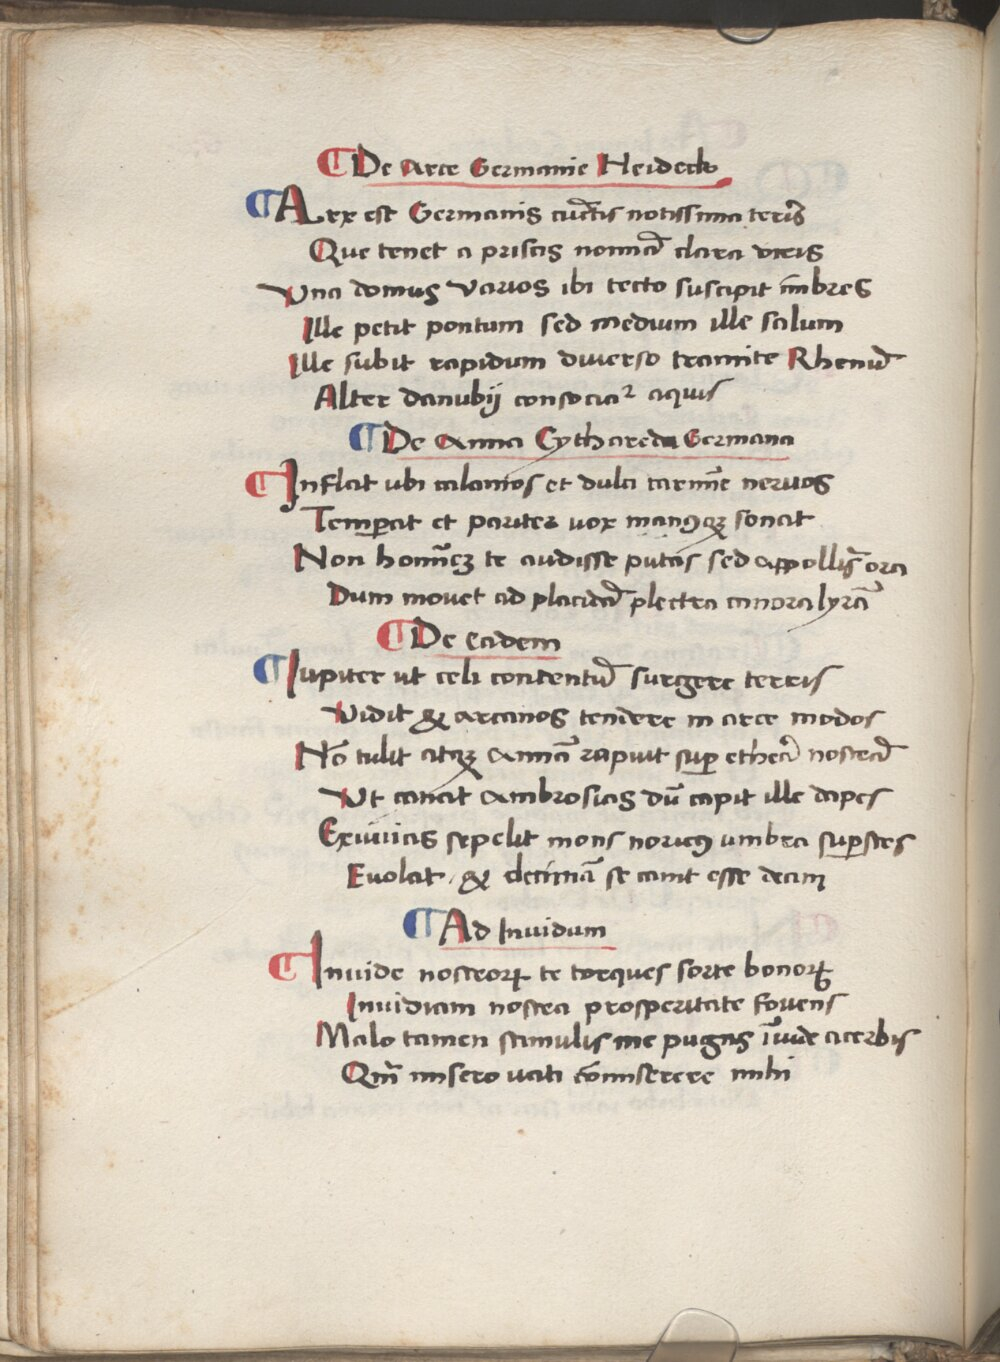 De Arce Germanie Heideck
Arx est Germanis cūctis notissima terris
Que tenet a priscis nomē clara viris
Vna domus varios ibi tecto suscipit imbres
Ille petit pontum sed medium ille salum
Ille subit rapidum diuerso tramite Rhenū
Alter danubij consociat² aquis
De Anna Cythareda Germana
Inflat ubi calamos et dulci carmīe neruos
Temꝑat et pariter uox manꝰqꝫ sonat
Non homīeꝫ te audisse putas sed appollīs ora
Dum mouet ad placidā plectra canora lyrā
De eadem
Iupiter ut celi contentū surgere terris
Vidit & arcanos tendere in arce modos
Nō tulit atqꝫ annā rapuit suꝑ etherā nostrā
Vt canat ambrosias dū capit ille dapes
Exuuias sepelit mons noricꝰ umbra suꝑstes
Euolat & decimā se canit esse deam
Ad Inuidum
Inuide nostroꝝ te torques sorte bonoꝝ
Inuidiam nostra prosperitate fouens
Malo tamen stimulis me pugnes īuide acerbis
Qm̄ misero uati cōmiserere mihi